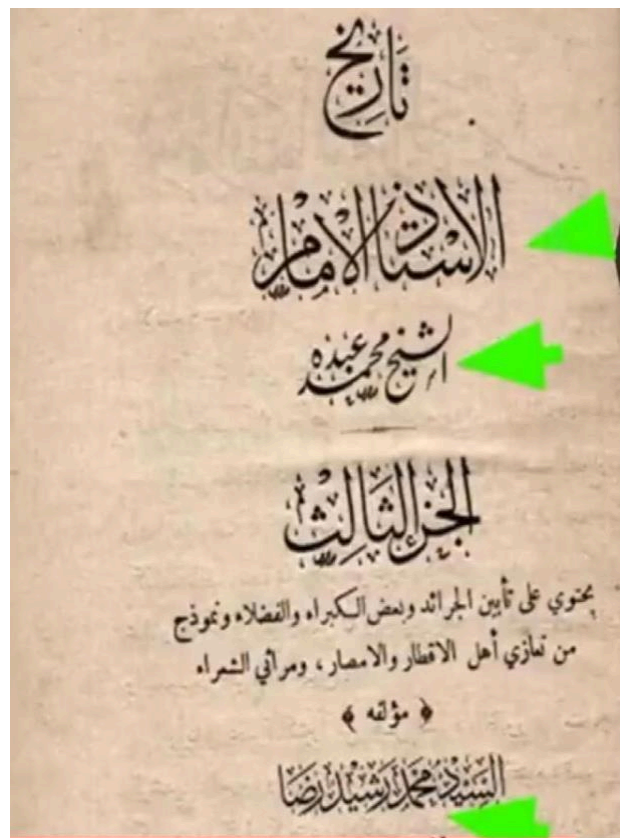 تاريخ
الأستاذ الإمام
الشيخ محمد عبده
الجزء الثالث
يحتوي على تأبين الجرائد وبعض الكبراء والفضلاء ونموذج
من تعازي أهل الاقطار والامصار ، ومراثي الشعراء
﴿ مؤلفه ﴾
السيد محمد رشيد رضا